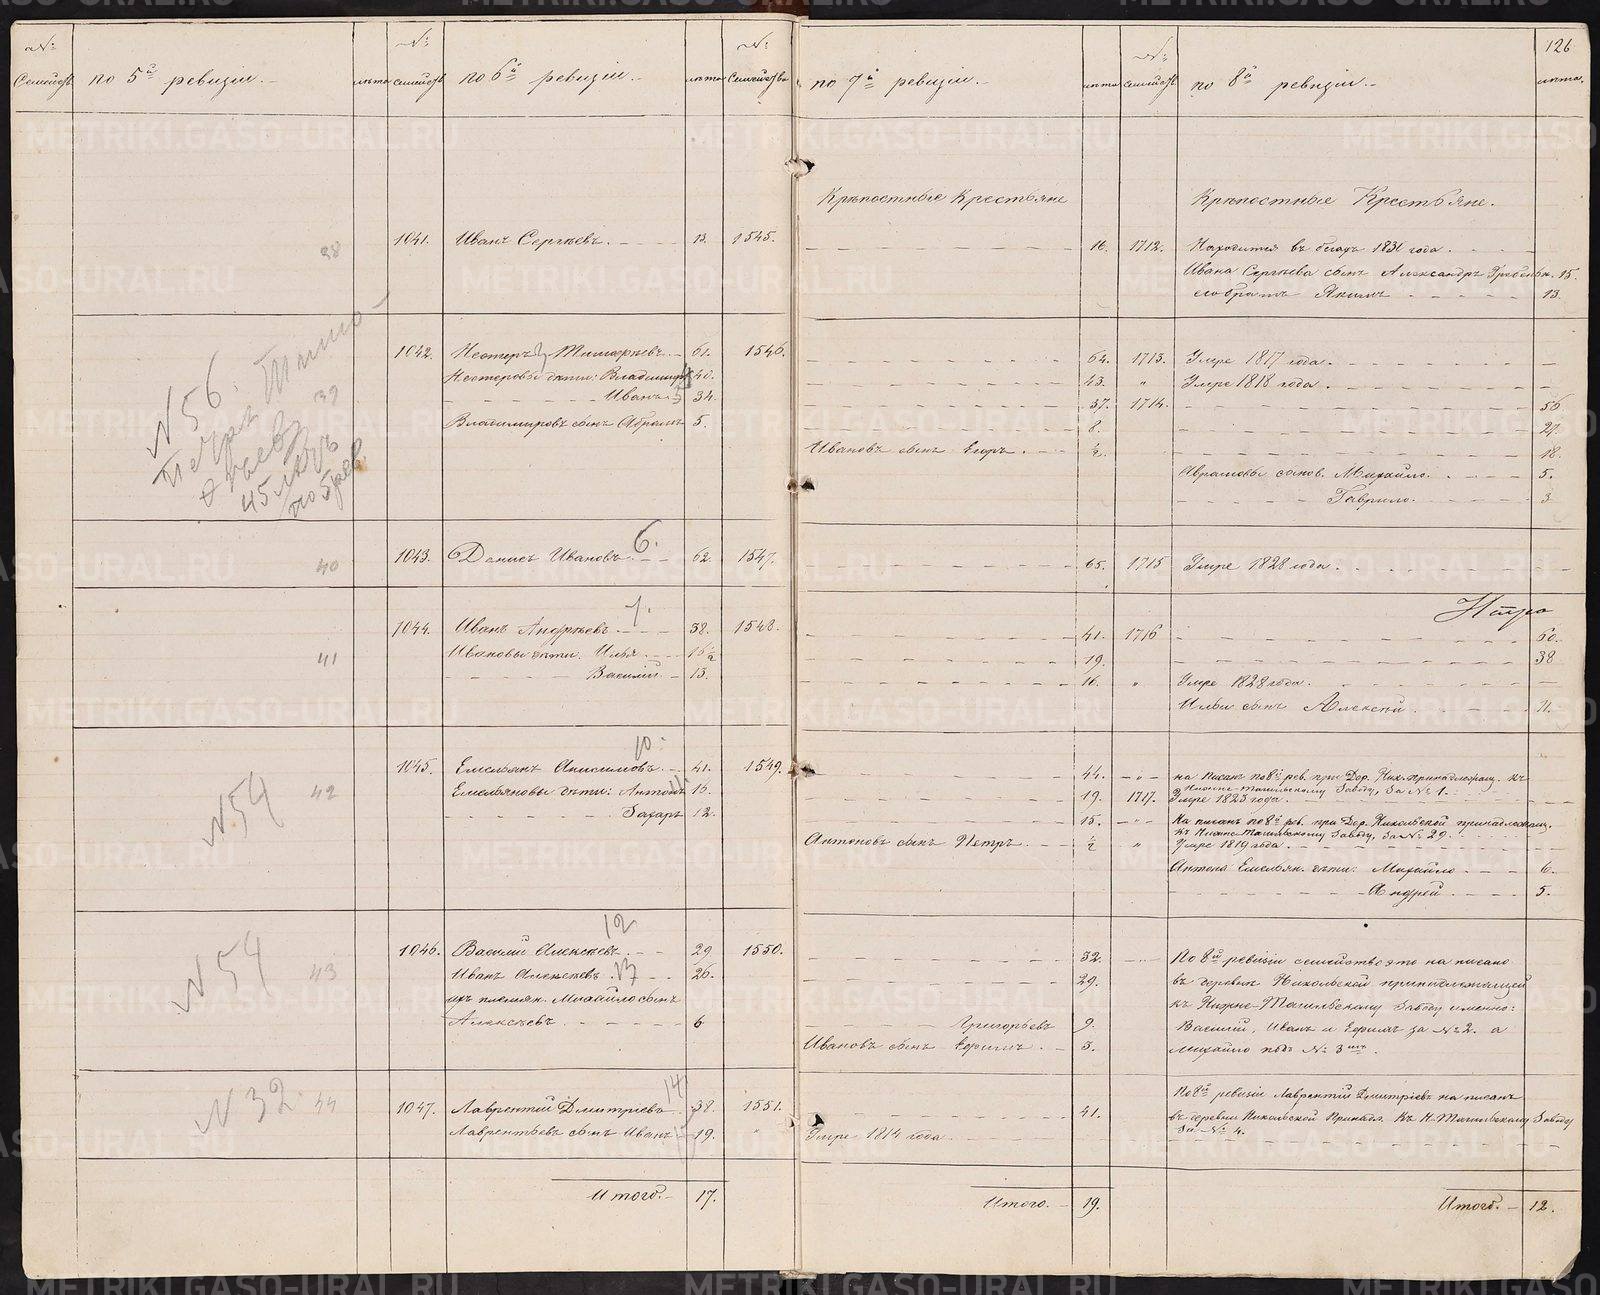 126
№ Семейств. по 5й ревизіи. лѣта № семейств. по 6й ревизіи. лѣта № Семейства по 7й ревизіи. лѣта № семейств. по 8й ревизіи. лѣта.
Крѣпостные Крестьяне Крѣпостные Крестьяне.
38 1041. Иванъ Сергѣевъ. 13. 1545. 16. 1712. Находится въ бѣгахъ 1831 года.
Ивана Сергѣева сынъ Александръ 15.
его братъ Якимъ 13.
1042. Несторъ Тимофѣевъ. 61. 1546. 64. 1713. Умре 1817 года.
Несторовы дѣти: Владимиръ 40. 43. " Умре 1818 года.
39 Иванъ 34. 37. 1714. 56.
Владимировъ сынъ Абрамъ 5. 8. 24.
Ивановъ сынъ Егоръ. ½ 18.
Аврамовы сынов. Михайло. 5.
Гаврило. 3
N 56. Петръ Тимо-
ѳѣевъ
45 лѣтъ
6.
40 1043. Денисъ Ивановъ. 62. 1547. 65. 1715 Умре 1828 года.
7.
41 1044. Иванъ Андрѣевъ. 38. 1548. 41. 1716 60.
Ивановы дѣти. Илья 16½ 19. 38
Василий. 13. 16. " Умре 1828 года.
Ильи сынъ Алексѣй. 11.
10.
N 54 42 1045. Емельянъ Анисимовъ. 41. 1549. 44. " на писанъ по 8й рев. при Дер. Ник. принадлежащ. къ
Нижне-Тагильскому Заводу, за № 1.
Емельяновы дѣти: Антонъ 16. 19. 1717. Умре 1823 года.
Захаръ 12. 15. На писанъ по 8й рев. при Дер. Никольской принадлежащ.
къ Нижне-Тагильскому Заводу, за № 29.
Антоновъ сынъ Петръ. ½ " Умре 1819 года.
Антона Емельян. дѣти: Михайло 6.
Андрей 5.
12
N 54 43 1046. Василий Алексѣевъ. 29 1550. 32. По 8й ревизіи семейство это на писано
Иванъ Алексѣевъ. 13 26. 29. въ деревнѣ Никольской принадлежащей
ихъ племян. Михайло сынъ къ Нижне-Тагильскому Заводу именно:
Алексѣевъ. 6 Григорьевъ 9. Василий, Иванъ и Ефимъ за № 2. а
Ивановъ сынъ Ефимъ. 3. Михайло подъ № 3мъ.
14
N 32. 44 1047. Лаврентий Дмитріевъ 38. 1551. 41. По 8й ревизіи Лаврентий Дмитріевъ на писанъ
въ деревни Никольской Принадл. къ Н. Тагильскому Заводу
за № 4.
Лаврентьевъ сынъ Иванъ 15 19. " Умре 1814 года
Итого. 17. Итого. 19. Итого. 12.
METRIKI.GASO-URAL.RU